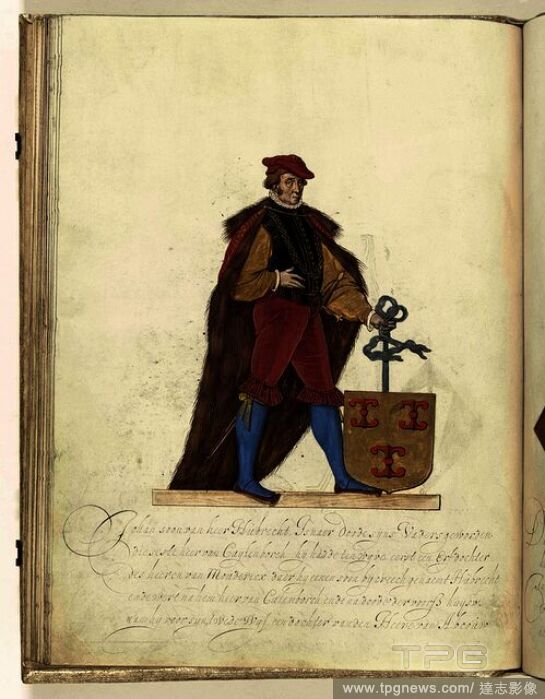 Johan soon van heer Hubrecht, Is naer doode syns Vaders geworden
die seste heer van Cuylenborch, hy hadde ten wyve eerst een Erfdochter
des heeren van Mau daer hy eenen soon by creech genaemt Hubrecht
ende wert na hem heer van Culenborch ende na doode der voorß huysv
nam hy voor syn twede Wyf een dochter van den Heere van Abcoude
TPG
www.tpgnews.com/ 達志影像